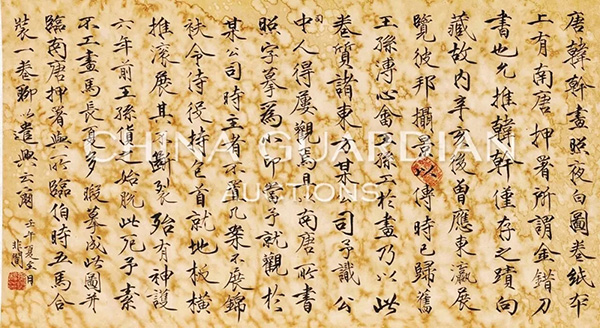 唐韓幹畫照夜白圖卷紙本
上有南唐押署所謂金錯刀
書也允推韓幹僅存之蹟向
藏故内辛亥後曾應東瀛展
覽彼邦攝景以傳時已歸舊
王孫溥心畬王孫工於畫乃以此
卷質諸東方某公司予識公
司中人得屢觀焉且南唐所書
昭字摹為小印嘗予就觀於
某公司時王者不置几案不展錦
袱令侍役持卷首就地板橫
推滾展其不斷裂殆有神護
六年前王孫貨之始脫此厄予素
不工畫馬長夏多暇摹成此圖并
臨南唐押署與所臨伯時五馬合
裝一卷聊以遣興云爾
壬午夏六月
非闇
CHINA GUARDIAN
AUCTIONS